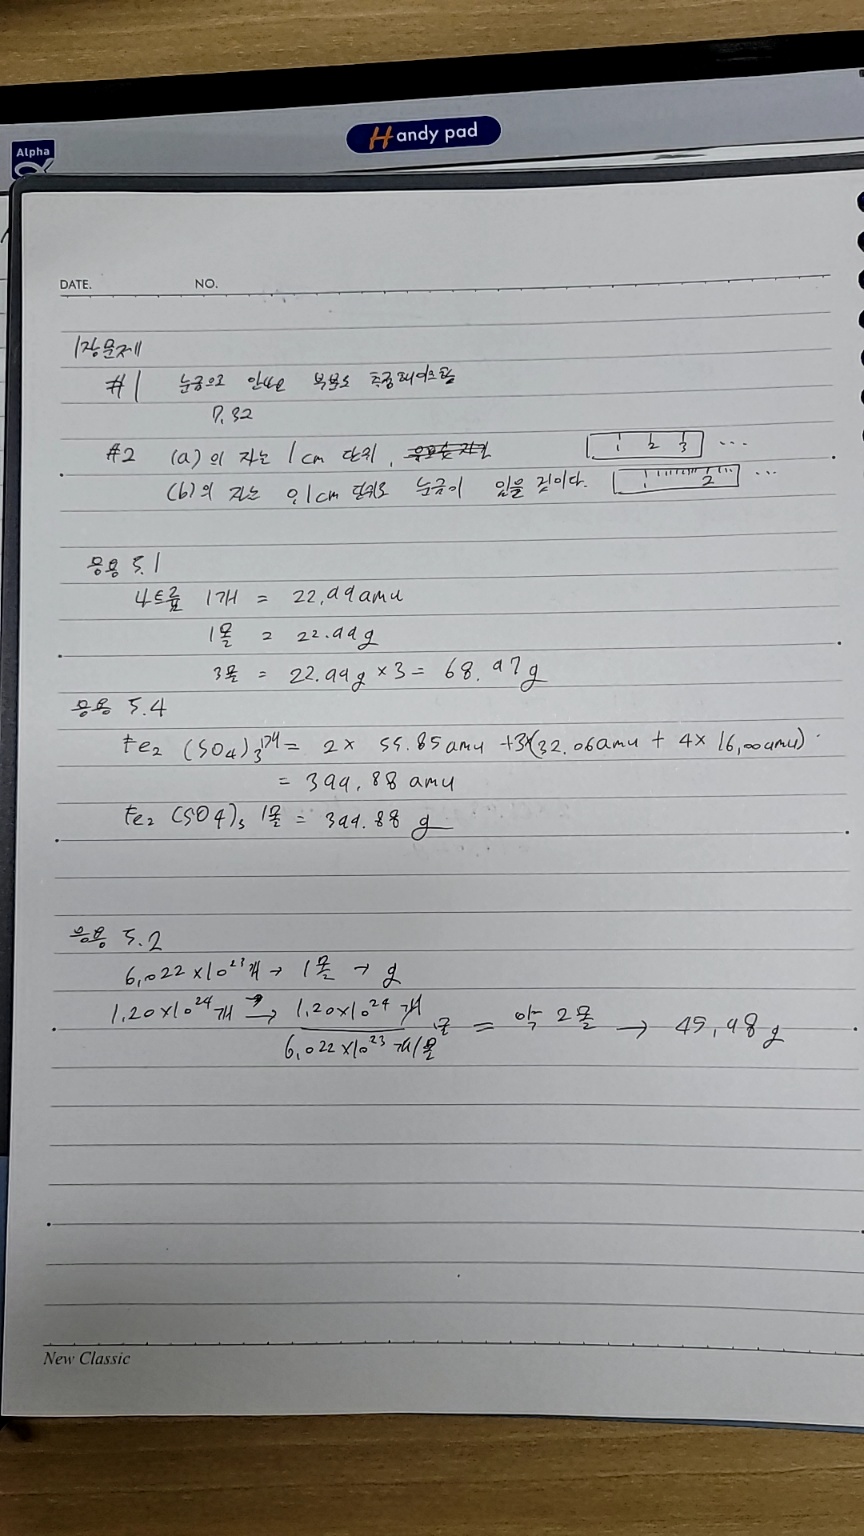 Alpha
Handy pad
DATE. NO.
1장문제
#1 눈금으로 안쓰는 부분도 측정해야함
7.32
#2 (a)의 자는 1cm 단위,
1 2 3 ...
(b)의 자는 0.1cm 단위로 눈금이 있을 것이다.
1 2 ...
응용 5.1
나트륨 1개 = 22.99amu
1몰 = 22.99g
3몰 = 22.99g × 3 = 68.97g
응용 5.4
Fe₂(SO₄)₃ 1개 = 2 × 55.85amu + 3×(32.06amu + 4× 16.00amu)
= 399.88 amu
Fe₂(SO4)₃ 1몰 = 399.88 g
응용 5.2
6.022×10²³개 → 1몰 → g
1.20×10²⁴개 → 1.20×10²⁴개 / 6.022×10²³개/몰 몰 = 약 2몰 → 45.98g
New Classic